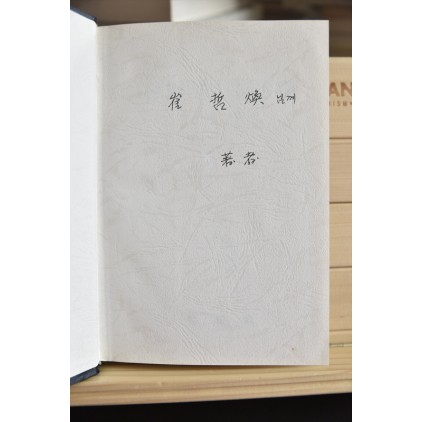 崔 哲 煥 님께
著者
AN